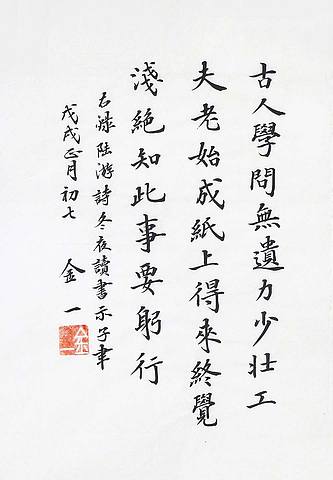 古人學問無遺力少壯工
夫老始成紙上得來終覺
淺絕知此事要躬行
右漵陸游詩冬夜讀書示子聿
戊戌正月初七
金一